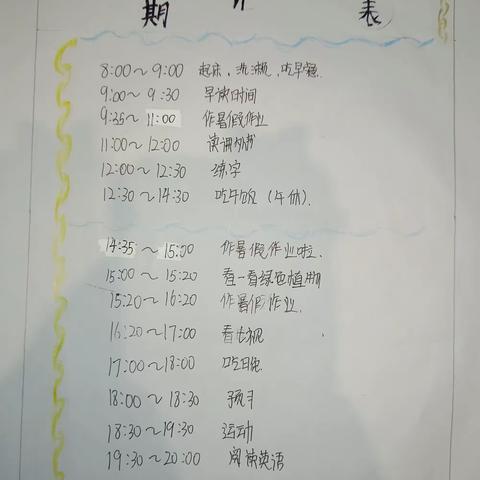 期 计 表
8:00～9:00 起床,洗漱,吃早餐
9:00～9:30 早读时间
9:35～11:00 作暑假作业
11:00～12:00 读课外书
12:00～12:30 练字
12:30～14:30 吃午饭(午休).
14:35～15:00 作暑假作业啦.
15:00～15:20 看一看绿色植物
15:20～16:20 作暑假作业.
16:20～17:00 看电视
17:00～18:00 吃晚
18:00～18:30 预习
18:30～19:30 运动
19:30～20:00 阅读英语